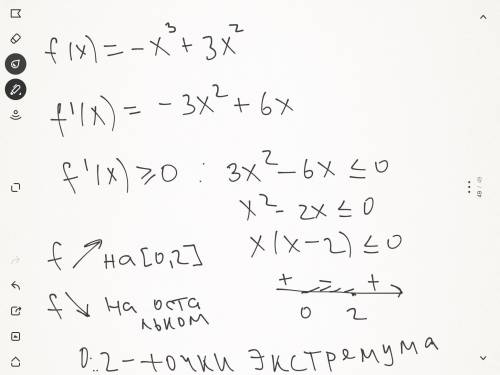 f(x) = -x³ + 3x²
f'(x) = -3x² + 6x
f'(x) ⩾ 0 : 3x² - 6x ≤ 0
x² - 2x ≤ 0
x(x-2) ≤ 0
f ↗ на [0,2]
+ - +
0 2
f ↘ на оста
льком
0; 2 - точки экстремума
49 / 49